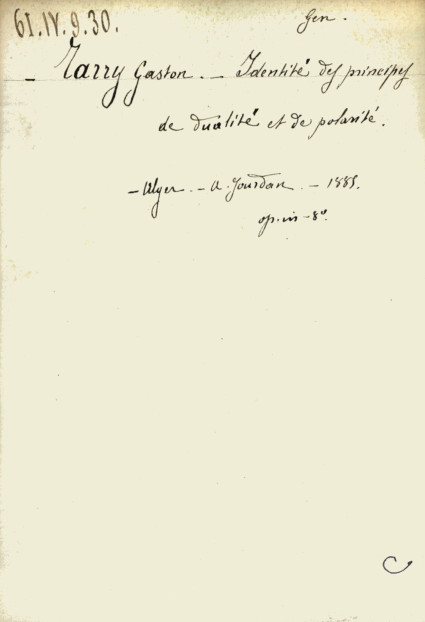 61.IV.9.30.
Gen.
– Tarry Gaston. – Identité des principes
de dualité et de polarité.
– Alger – A. Jourdan. – 1885.
op. in-8°.
C